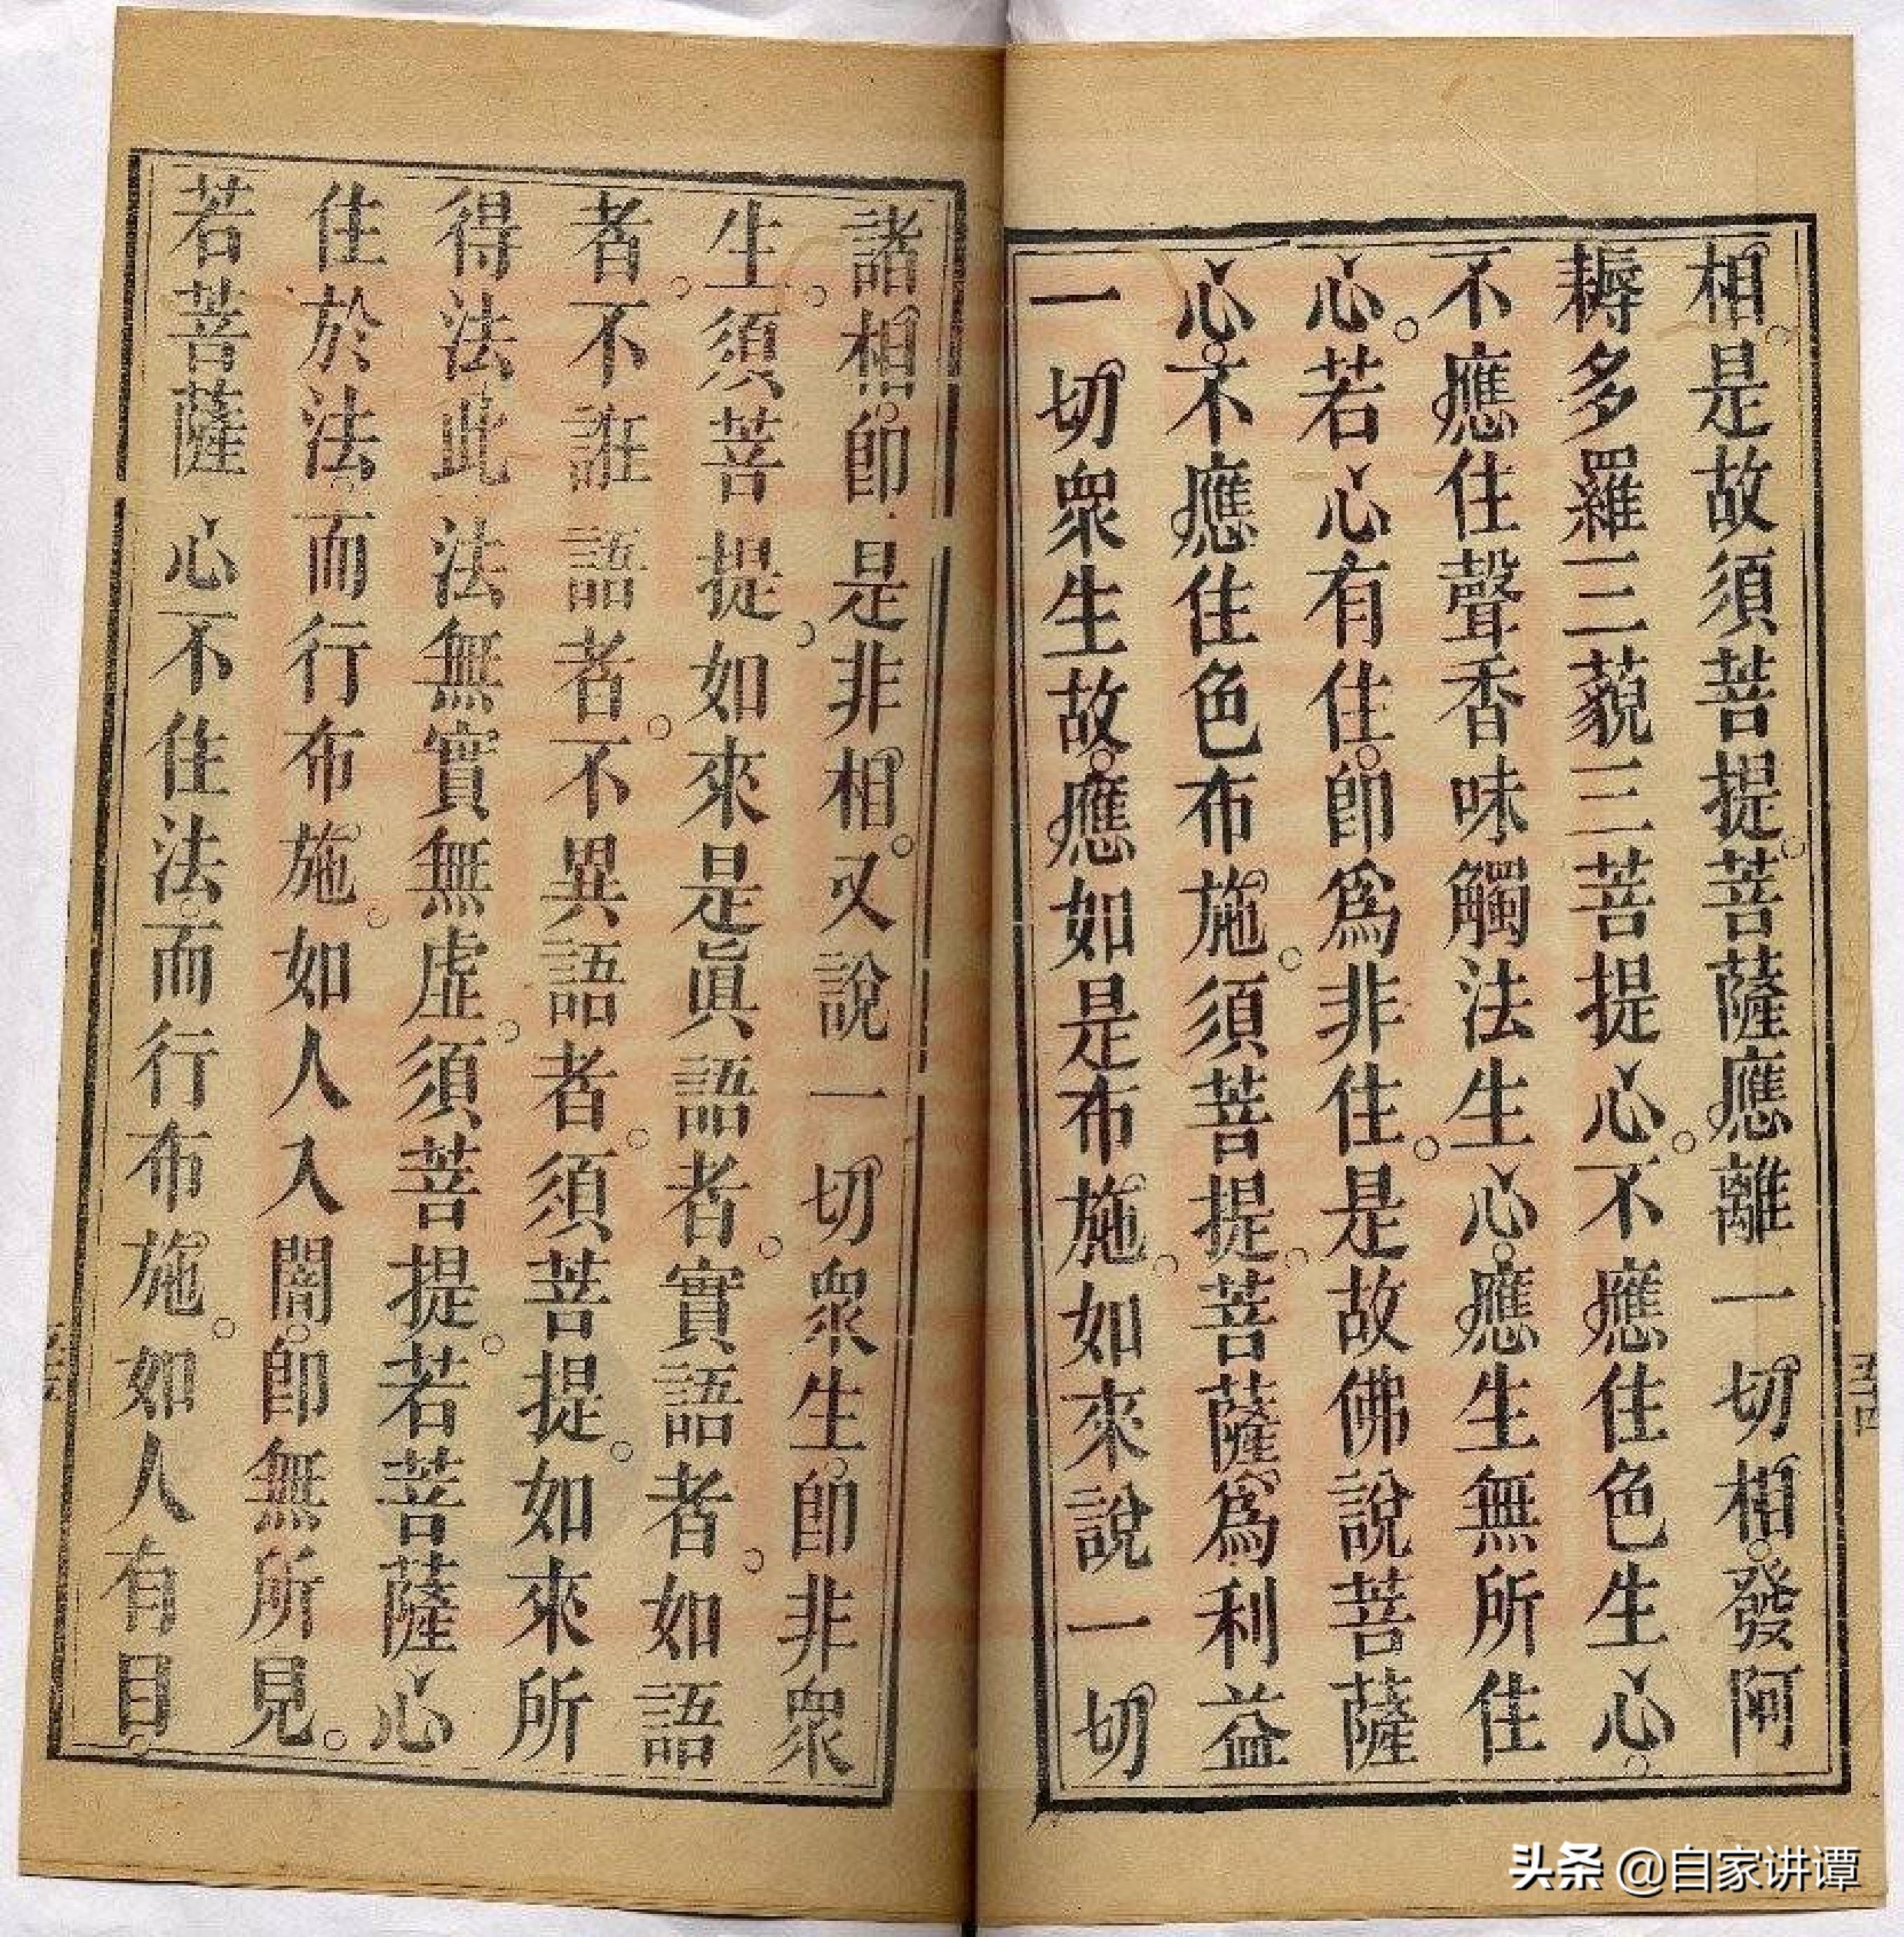 相。是故須菩提。菩薩應離一切相。發阿
耨多羅三藐三菩提心。不應住色生心。
不應住聲香味觸法生心。應生無所住
心。若心有住。卽爲非住。是故佛說菩薩
心。不應住色布施。須菩提。菩薩爲利益
一切衆生故。應如是布施。如來說一切
諸相。卽是非相。又說一切衆生。卽非衆
生。須菩提。如來是眞語者。實語者。如語
者。不誑語者。不異語者。須菩提。如來所
得法此法無實無虛。須菩提。若菩薩心
住於法。而行布施。如人入闇。卽無所見。
若菩薩心不住法。而行布施。如人有目。
五十四
头条 @自家讲谭